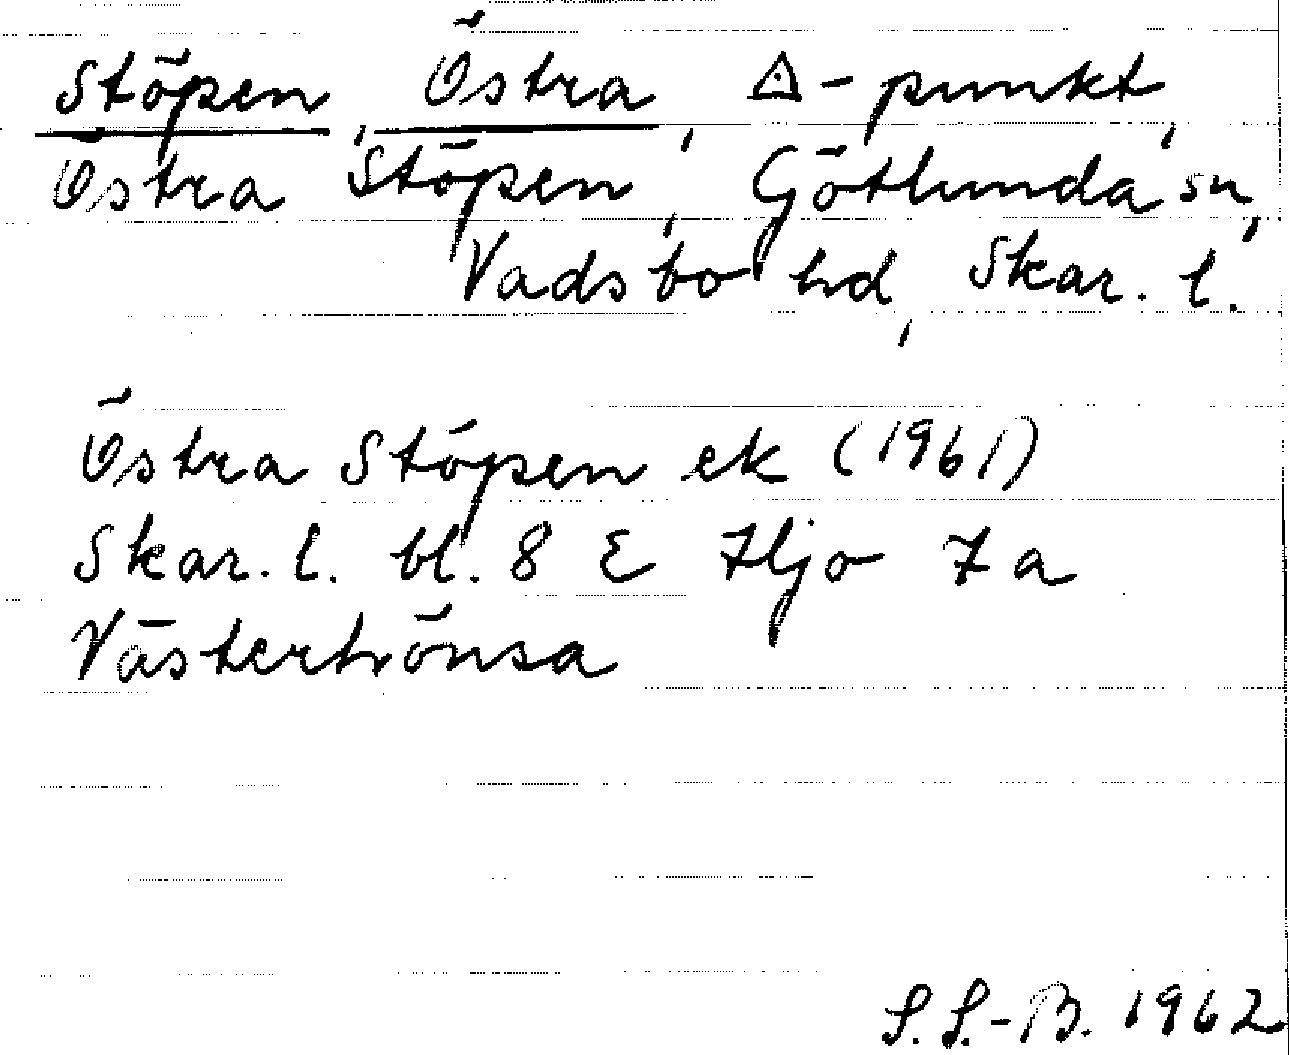 Stöpen, Östra, △-punkt,
Östra Stöpen, Götlunda sn,
Vadsbo hd, Skar. l.
Östra Stöpen ek (1961)
Skar. l. bl. 8 E Hjo 7 a
Västerhönsa
S. S.-B. 1962